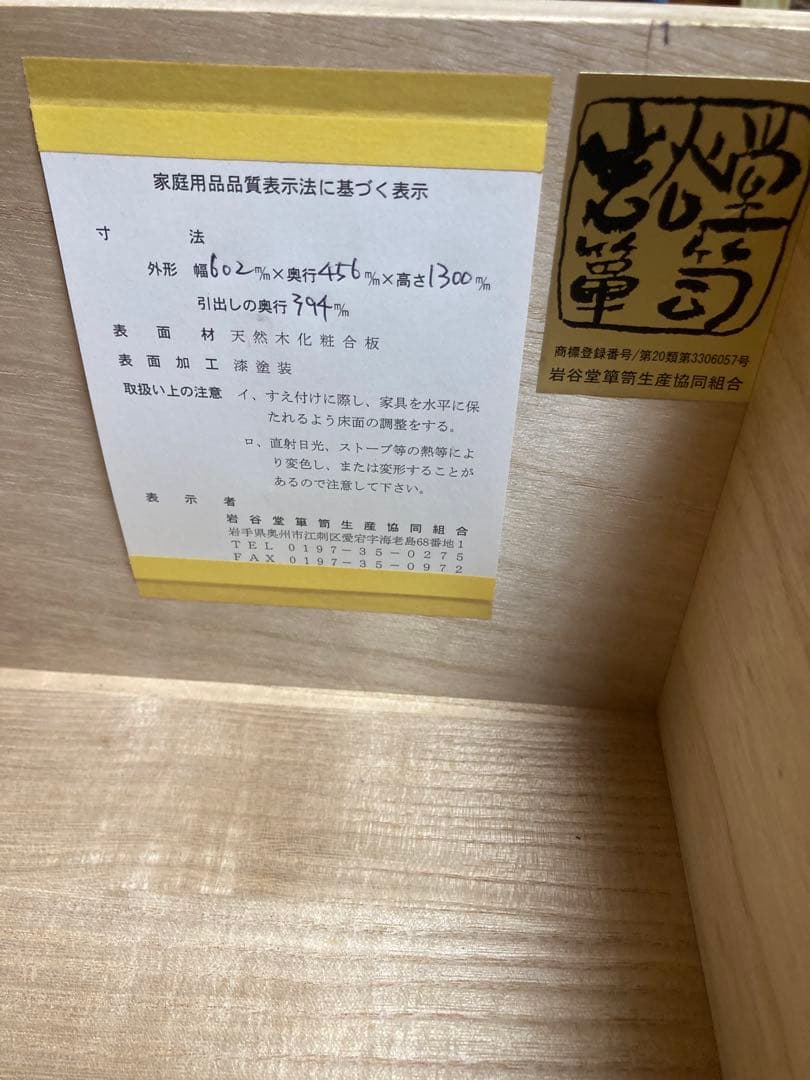 家庭用品品質表示法に基づく表示
寸法
外形 幅602m/m×奥行456m/m×高さ1300m/m
引出しの奥行394m/m
表面材 天然木化粧合板
表面加工 漆塗装
取扱い上の注意 イ、すえ付けに際し、家具を水平に保
たれるよう床面の調整をする。
ロ、直射日光、ストーブ等の熱等によ
り変色し、または変形することが
あるので注意して下さい。
表示者
岩谷堂箪笥生産協同組合
岩手県奥州市江刺区愛宕字海老島68番地1
TEL 0197-35-0275
FAX 0197-35-0972
岩谷堂
箪笥
商標登録番号/第20類第3306057号
岩谷堂箪笥生産協同組合
1